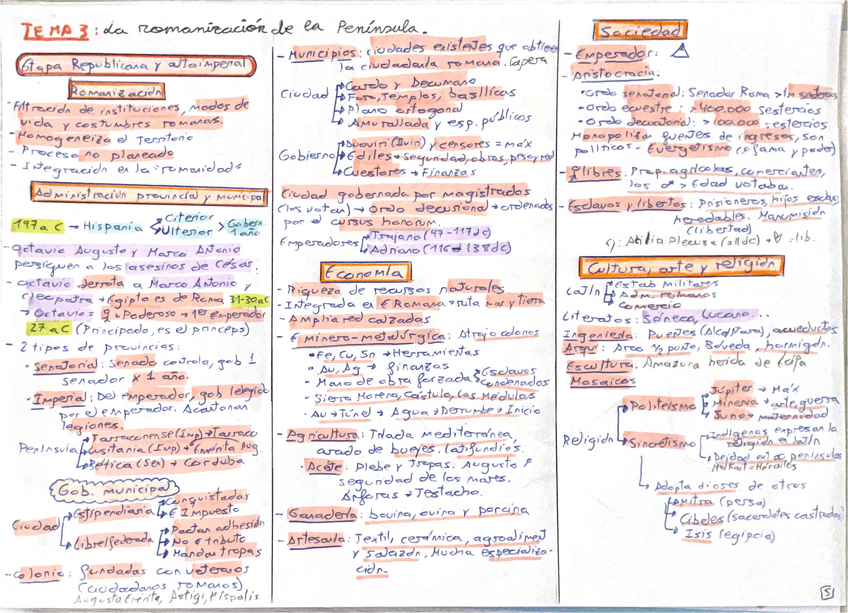 TEMA 3: La romanización de la Península.
Etapa Republicana y altoimperial
Romanización
- Filtración de instituciones, modos de
vida y costumbres romanas.
- Homogeneiza el territorio
- Proceso no planeado
- Integración en la "romanidad"
Administración provincial y municipal
197 a C → Hispania Citerior
Ulterior > Gobern
1 año
- Octavio Augusto y Marco Antonio
persiguen a los asesinos de César.
- Octavio derrota a Marco Antonio y
Cleopatra → Egipto es de Roma 31-30 a C
→ Octavio = + Poderoso → 1er Emperador
27 a C (Principado, es el princeps)
- 2 tipos de provincias:
· Senatorial: Senado controla, gob 1
senador x 1 año.
· Imperial: Del emperador, gob elegido
por el emperador. Acantonan
legiones.
Península Tarraconense (Imp) → Tarraco
Lusitania (Imp) → Emerita Aug
Bética (Sen) → Corduba
Gob. municipal
Ciudad Estipendiaria Conquistadas
E Impuesto
Libre/federada Pactan adhesión
No tributo
Mandar tropas
- Colonia: fundadas con veteranos
(ciudadanos romanos)
Augusta Emerita, Astigi, Hispalis
- Municipios: ciudades existentes que obtienen
la ciudadanía romana.
Ciudad Cardo y Decumano
Foro, Templos, basílicas
Plano ortogonal
Amurallada y esp. públicos
Gobierno Duoviri (IIviri) y censores = máx
Ediles = seguridad, obras, peso y med
Cuestores → Finanzas
Ciudad gobernada por magistrados
(los votan) → Ordo decurional → ordenados
por el cursus honorum.
Emperadores Trajano (97-117 dC)
Adriano (138 dC)
Economía
- Riqueza de recursos naturales
- Integrada en E Romana → ruta mar y tierra
- Amplia red calzadas
- E minero-metalúrgica: Atrajo colonos
· Fe, Cu, Sn → Herramientas
· Au, Ag → finanzas
· Mano de obra forzada Esclavos
condenados
· Sierra Morena, Cástulo, Las Médulas
· Au → Túnel → Agua → Derrumbe → Inicio
- Agricultura: Triada mediterránea,
arado de bueyes. latifundios.
· Aceite: Plebe y Tropas. Augusto
seguridad de los mares.
Ánforas → Testacho.
- Ganadería: bovina, ovina y porcina
- Artesanía: Textil, cerámica, agroaliment
y salazón, Mucha especializa-
ción.
Sociedad
- Emperador:
- Aristocracia:
· Ordo senatorial: Senador Roma > 1m sestercios
· Ordo ecuestre: > 400.000 sestercios
· Ordo decurional: > 100.000 sestercios
Monopolizar fuentes de ingresos, son
políticos - Evergetismo (Fama y poder)
- Libres: Prop. agrícolas, comerciantes,
los ♂ > Edad votaban.
- Esclavos y libertos: Prisioneros, hijos esclavo
heredables. Manumisión
(libertad)
Cultura, arte y religión
Latín Estab militares
Adm. romanos
Comercio
Literatos: Séneca, Lucano...
Ingeniería: Puentes (Alcántara), acueductos
Arqu: Arco 1/2 punto, Bóveda, hormigón.
Escultura. Amazona herida de Écija
Mosaicos
Religión Politeísmo Júpiter → Máx
Minerva → arte, guerra
Juno → maternidad
Sincretismo Indígenas expresan la
religión en latín
Deidad península
Melkart = Hércules
Adopta dioses de otros
Mitra (persa)
Cibeles (sacerdotes castrados)
Isis (egipcia)
5